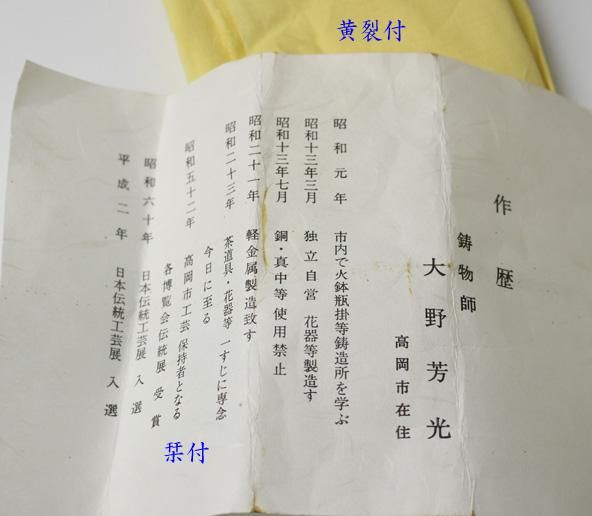 黄裂付
作歴
鋳物師
大野芳光
高岡市在住
昭和元年 市内で火鉢瓶掛等鋳造所を学ぶ
昭和十三年三月 独立自営 花器等製造す
昭和十三年七月 銅・真中等使用禁止
昭和二十一年 軽金属製造致す
昭和二十三年 茶道具・花器等一すじに専念
今日に至る
昭和五十二年 高岡市工芸保持者となる
各博覧会伝統展受賞
昭和六十年 日本伝統工芸展入選
平成二年 日本伝統工芸展入選
栞付